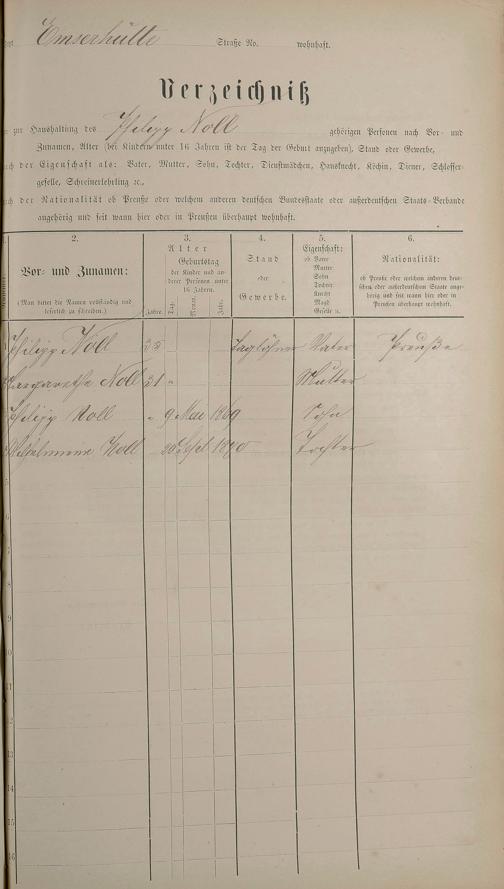 Emserhütte Straße No. wohnhaft.
Verzeichniß
zur Haushaltung des Philipp Noll gehörigen Personen nach Vor- und
Zunamen, Alter (bei Kindern unter 16 Jahren ist der Tag der Geburt anzugeben), Stand oder Gewerbe,
nach der Eigenschaft als: Vater, Mutter, Sohn, Tochter, Dienstmädchen, Hausknecht, Köchin, Diener, Schlosser-
geselle, Schreinerlehrling ꝛc.,
nach der Nationalität ob Preuße oder welchem anderen deutschen Bundesstaate oder außerdeutschen Staats-Verbande
angehörig und seit wann hier oder in Preußen überhaupt wohnhaft.
2. 3. 4. 5. 6.
Vor- und Zunamen:
(Man bittet die Namen vollständig und
leserlich zu schreiben.)
Alter
Geburtstag
der Kinder und an-
derer Personen unter
16 Jahren.
Jahre. Tag. Monat. Jahr.
Stand
oder
Gewerbe.
Eigenschaft:
ob Vater
Mutter
Sohn
Tochter
Knecht
Magd
Geselle u.
Nationalität:
ob Preuße oder welchem anderen deut-
schen oder außerdeutschen Staate ange-
hörig und seit wann hier oder in
Preußen überhaupt wohnhaft.
Philipp Noll Taglöhner Vater Preuße
Margarethe Noll 31 " Mutter
Philipp Noll " 9 Mai 1869 Sohn
Wilhelmine Noll 20 Sept 1870 Tochter
5
6
7
8
9
10
11
12
13
14
15
16